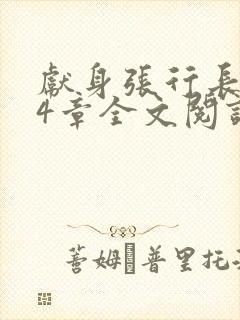 獻身張行長
4章全文閱讀
蓍姆 普里托